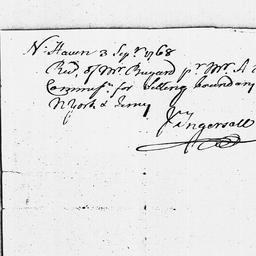 N: Haven 3 Sepr. 1768
Recd. of Mr. Bayard pr Mr. A
Commrs. for Setling boundary
N York & Jersey
Jngersoll